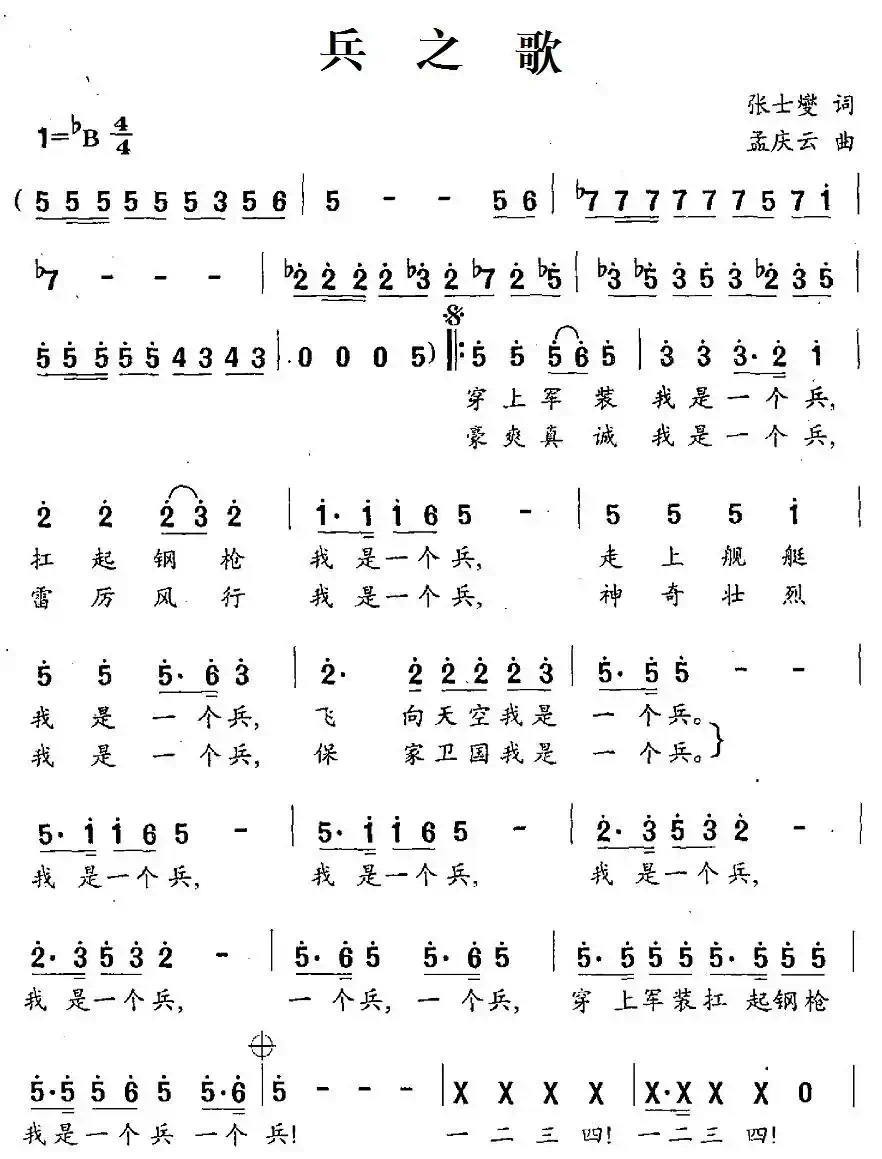 兵之歌
张士燮 词
1=♭B 4/4
孟庆云 曲
( 5 5 5 5 5 5 3 5 6 | 5 - - 5 6 | ♭7 7 7 7 7 7 5 7 1 |
♭7 - - - | ♭2 2 2 2 ♭3 2 ♭7 2 ♭5 | ♭3 ♭5 3 5 3 ♭2 3 5 |
5 5 5 5 5 4 3 4 3 | 0 0 0 5 ) 𝄋 ‖: 5 5 5 6 5 | 3 3 3· 2 1 |
穿上军装 我是一个兵,
豪爽真诚 我是一个兵,
2 2 2 3 2 | 1· 1 1 6 5 - | 5 5 5 1 |
扛起钢枪 我是一个兵, 走上舰艇
雷厉风行 我是一个兵, 神奇壮烈
5 5 5· 6 3 | 2· 2 2 2 2 3 | 5· 5 5 - - |
我是一个兵, 飞 向天空我是 一个兵。
我是一个兵, 保 家卫国我是 一个兵。}
5· 1 1 6 5 - | 5· 1 1 6 5 - | 2· 3 5 3 2 - |
我是一个兵, 我是一个兵, 我是一个兵,
2· 3 5 3 2 - | 5· 6 5 5· 6 5 | 5· 5 5 5 5· 5 5 5 |
我是一个兵, 一个兵, 一个兵, 穿上军装扛起钢枪
5· 5 5 6 5 5· 6 | 5 - - - | X X X X | X· X X X 0 |
我是一个兵 一个 兵! 一二三四! 一二三四!